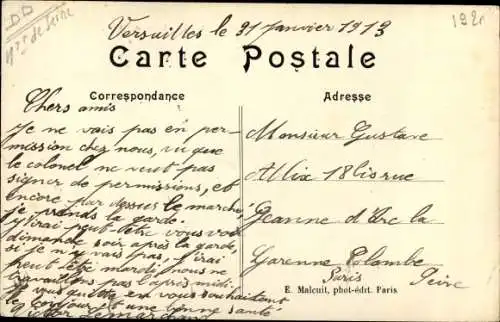 Versailles le 31 Janvier 1913
Carte Postale
Correspondance
Adresse
Chers amis
Je ne vais pas en per-
mission chez nous, vu que
le colonel ne veut pas
signer de permissions, et
encore par dessus le marché,
je prends la garde.
J'irai peut être vous voir
dimanche soir après la garde,
si je n'y vais pas, j'irai
peut être mardi, nous ne
travaillons pas l'après midi.
Je vous quitte en vous souhaitant
le bonjour et une bonne santé
Monsieur Gustave
Alix 18 bis rue
Jeanne d'Arc la
Garenne Colombe
Paris Seine
E. Malcuit, phot-édrt. Paris
DD
de Seine